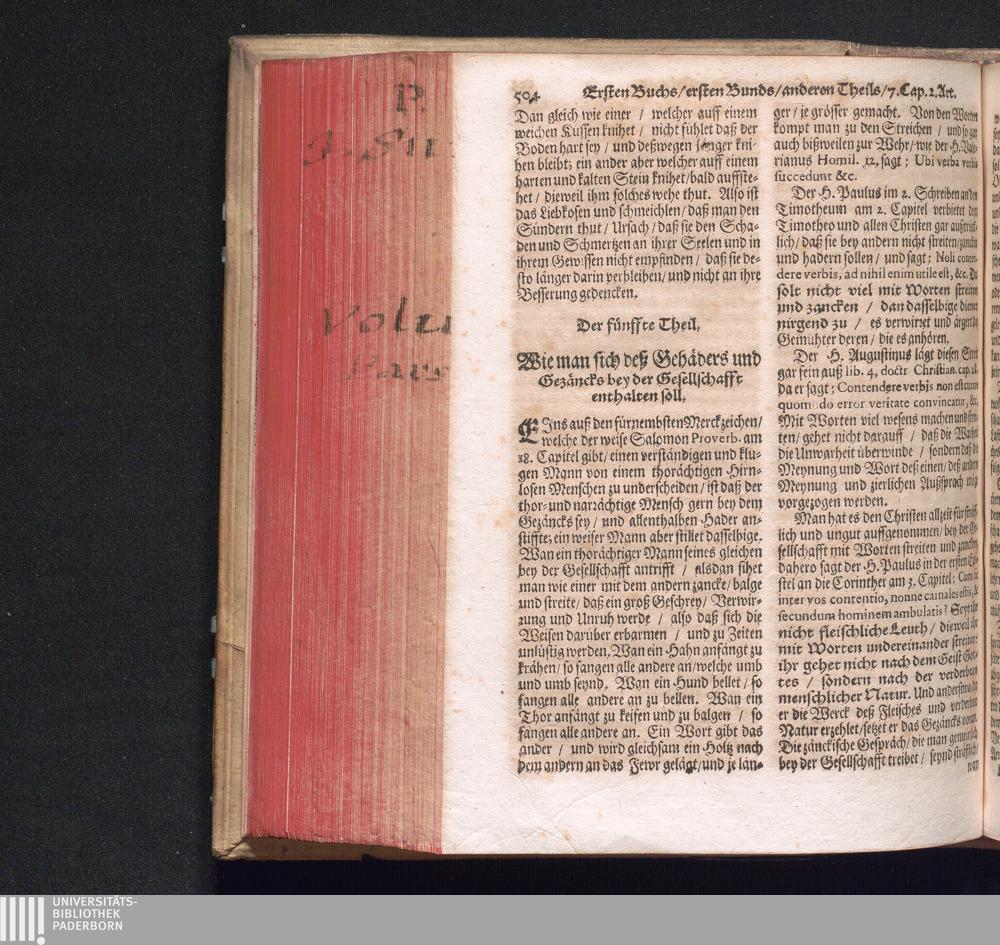 504 Ersten Buchs/ersten Bunds/anderen Theils/7.Cap.2.Art.
Dan gleich wie einer / welcher auff einem
weichen Kussen knihet / nicht fühlet daß der
Boden hart sey / und deßwegen länger kni-
hen bleibt; ein ander aber welcher auff einem
harten und kalten Stein knihet/bald auffste-
het / dieweil ihm solches wehe thut. Also ist
das Liebkosen und schmeichlen/ daß man den
Sündern thut / Ursach / daß sie den Scha-
den und Schmertzen an ihrer Seelen und in
ihrem Gewissen nicht empfinden / daß sie de-
sto länger darin verbleiben/ und nicht an ihre
Besserung gedencken.
Der fünffte Theil.
Wie man sich deß Gehäders und
Gezäncks bey der Gesellschafft
enthalten soll.
EIns auß den fürnembsten Merckzeichen/
welche der weise Salomon Proverb. am
18. Capitel gibt/ einen verständigen und klu-
gen Mann von einem thorächtigen Hirn-
losen Menschen zu underscheiden / ist daß der
thor- und narrächtige Mensch gern bey dem
Gezäncks sey / und allenthalben Hader an-
stiffte; ein weiser Mann aber stillet dasselbige.
Wan ein thorächtiger Mann seines gleichen
bey der Gesellschafft antrifft / alsdan sihet
man wie einer mit dem andern zancke/ balge
und streite/ daß ein groß Geschrey/ Verwir-
rung und Unruh werde / also daß sich die
Weisen darüber erbarmen / und zu Zeiten
unlüstig werden. Wan ein Hahn anfängt zu
krähen/ so fangen alle andere an/welche umb
und umb seynd. Wan ein Hund bellet / so
fangen alle andere an zu bellen. Wan ein
Thor anfängt zu keifen und zu balgen / so
fangen alle andere an. Ein Wort gibt das
ander / und wird gleichsam ein Holtz nach
dem andern an das Fewr gelägt/und je län-
ger / je grösser gemacht. Von den Worten
kompt man zu den Streichen / und so gar
auch bißweilen zur Wehr/ wie der H. Vale-
rianus Homil. 12. sagt ; Ubi verba verbis
succedunt &c.
Der H. Paulus im 2. Schreiben an den
Timotheum am 2. Capitel verbietet dem
Timotheo und allen Christen gar außtrück-
lich/ daß sie bey andern nicht streiten/zancken
und hadern sollen / und sagt; Noli conten-
dere verbis, ad nihil enim utile est, &c. Du
solt nicht viel mit Worten streiten
und zancken / dan dasselbige dienet
nirgend zu / es verwirret und ärgert die
Gemühter deren / die es anhören.
Der H. Augustinus lägt diesen
gar fein auß lib. 4. doctr Christian. cap.
da er sagt ; Contendere verbis non est curare
quomodo error veritate convincatur, &c.
Mit Worten viel wesens machen und strei-
ten/ gehet nicht darauff / daß die Warheit
die Unwarheit überwinde / sondern daß die
Meynung und Wort deß einen/ deß andern
Meynung und zierlichen Außsprach mög
vorgezogen werden.
Man hat es den Christen allzeit für sträff-
lich und ungut auffgenommen/ bey der Ge-
sellschafft mit Worten streiten und zancken
dahero sagt der H. Paulus in der ersten Epi-
stel an die Corinther am 3. Capitel; Cum sit
inter vos contentio, nonne carnales estis, &
secundum hominem ambulatis? Seyt ihr
nicht fleischliche Leuth / dieweil ihr
mit Worten undereinander streitet;
ihr gehet nicht nach dem Geist Got-
tes / sondern nach der verderbten
menschlicher Natur. Und anderstwo da
er die Werck deß Fleisches und verderbter
Natur erzehlet/setzet er das Gezäncks voran.
Die zänckische Gespräch/ die man gemeinlich
bey der Gesellschafft treibet / seynd sträfflich/
P.
Volu
Pars
UNIVERSITÄTS-
BIBLIOTHEK
PADERBORN